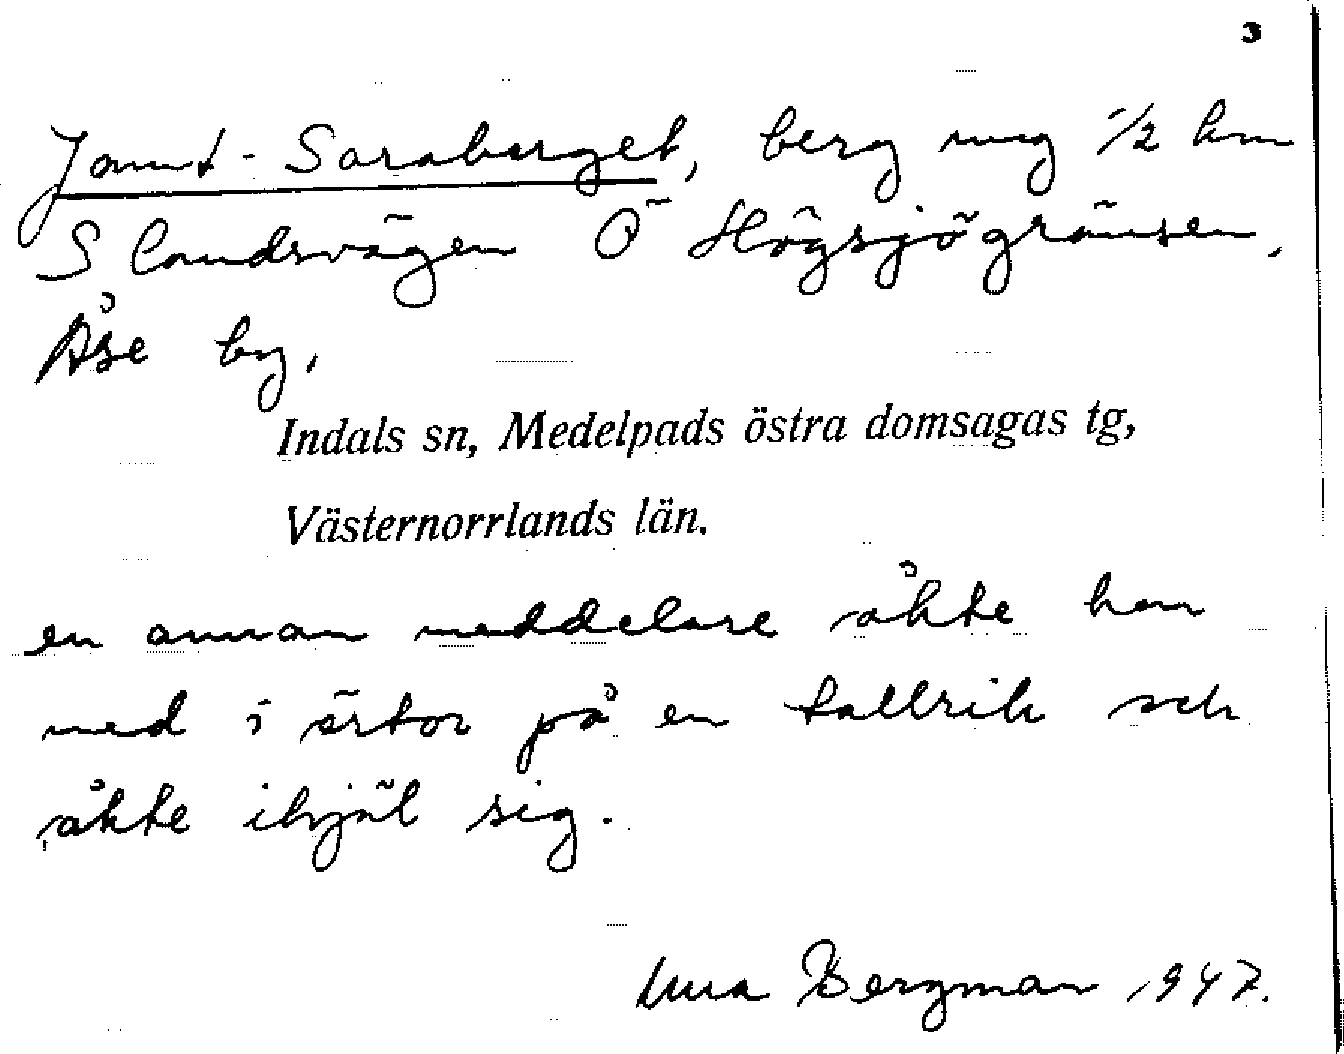 3
Jamt-Saraberget, berg ung 1/2 km
S landsvägen Ö Högsjögränsen,
Åse by,
Indals sn, Medelpads östra domsagas tg,
Västernorrlands län.
en annan meddelare åkte han
ned i ärtor på en tallrik och
åkte ihjäl sig.
Bergman 1947.